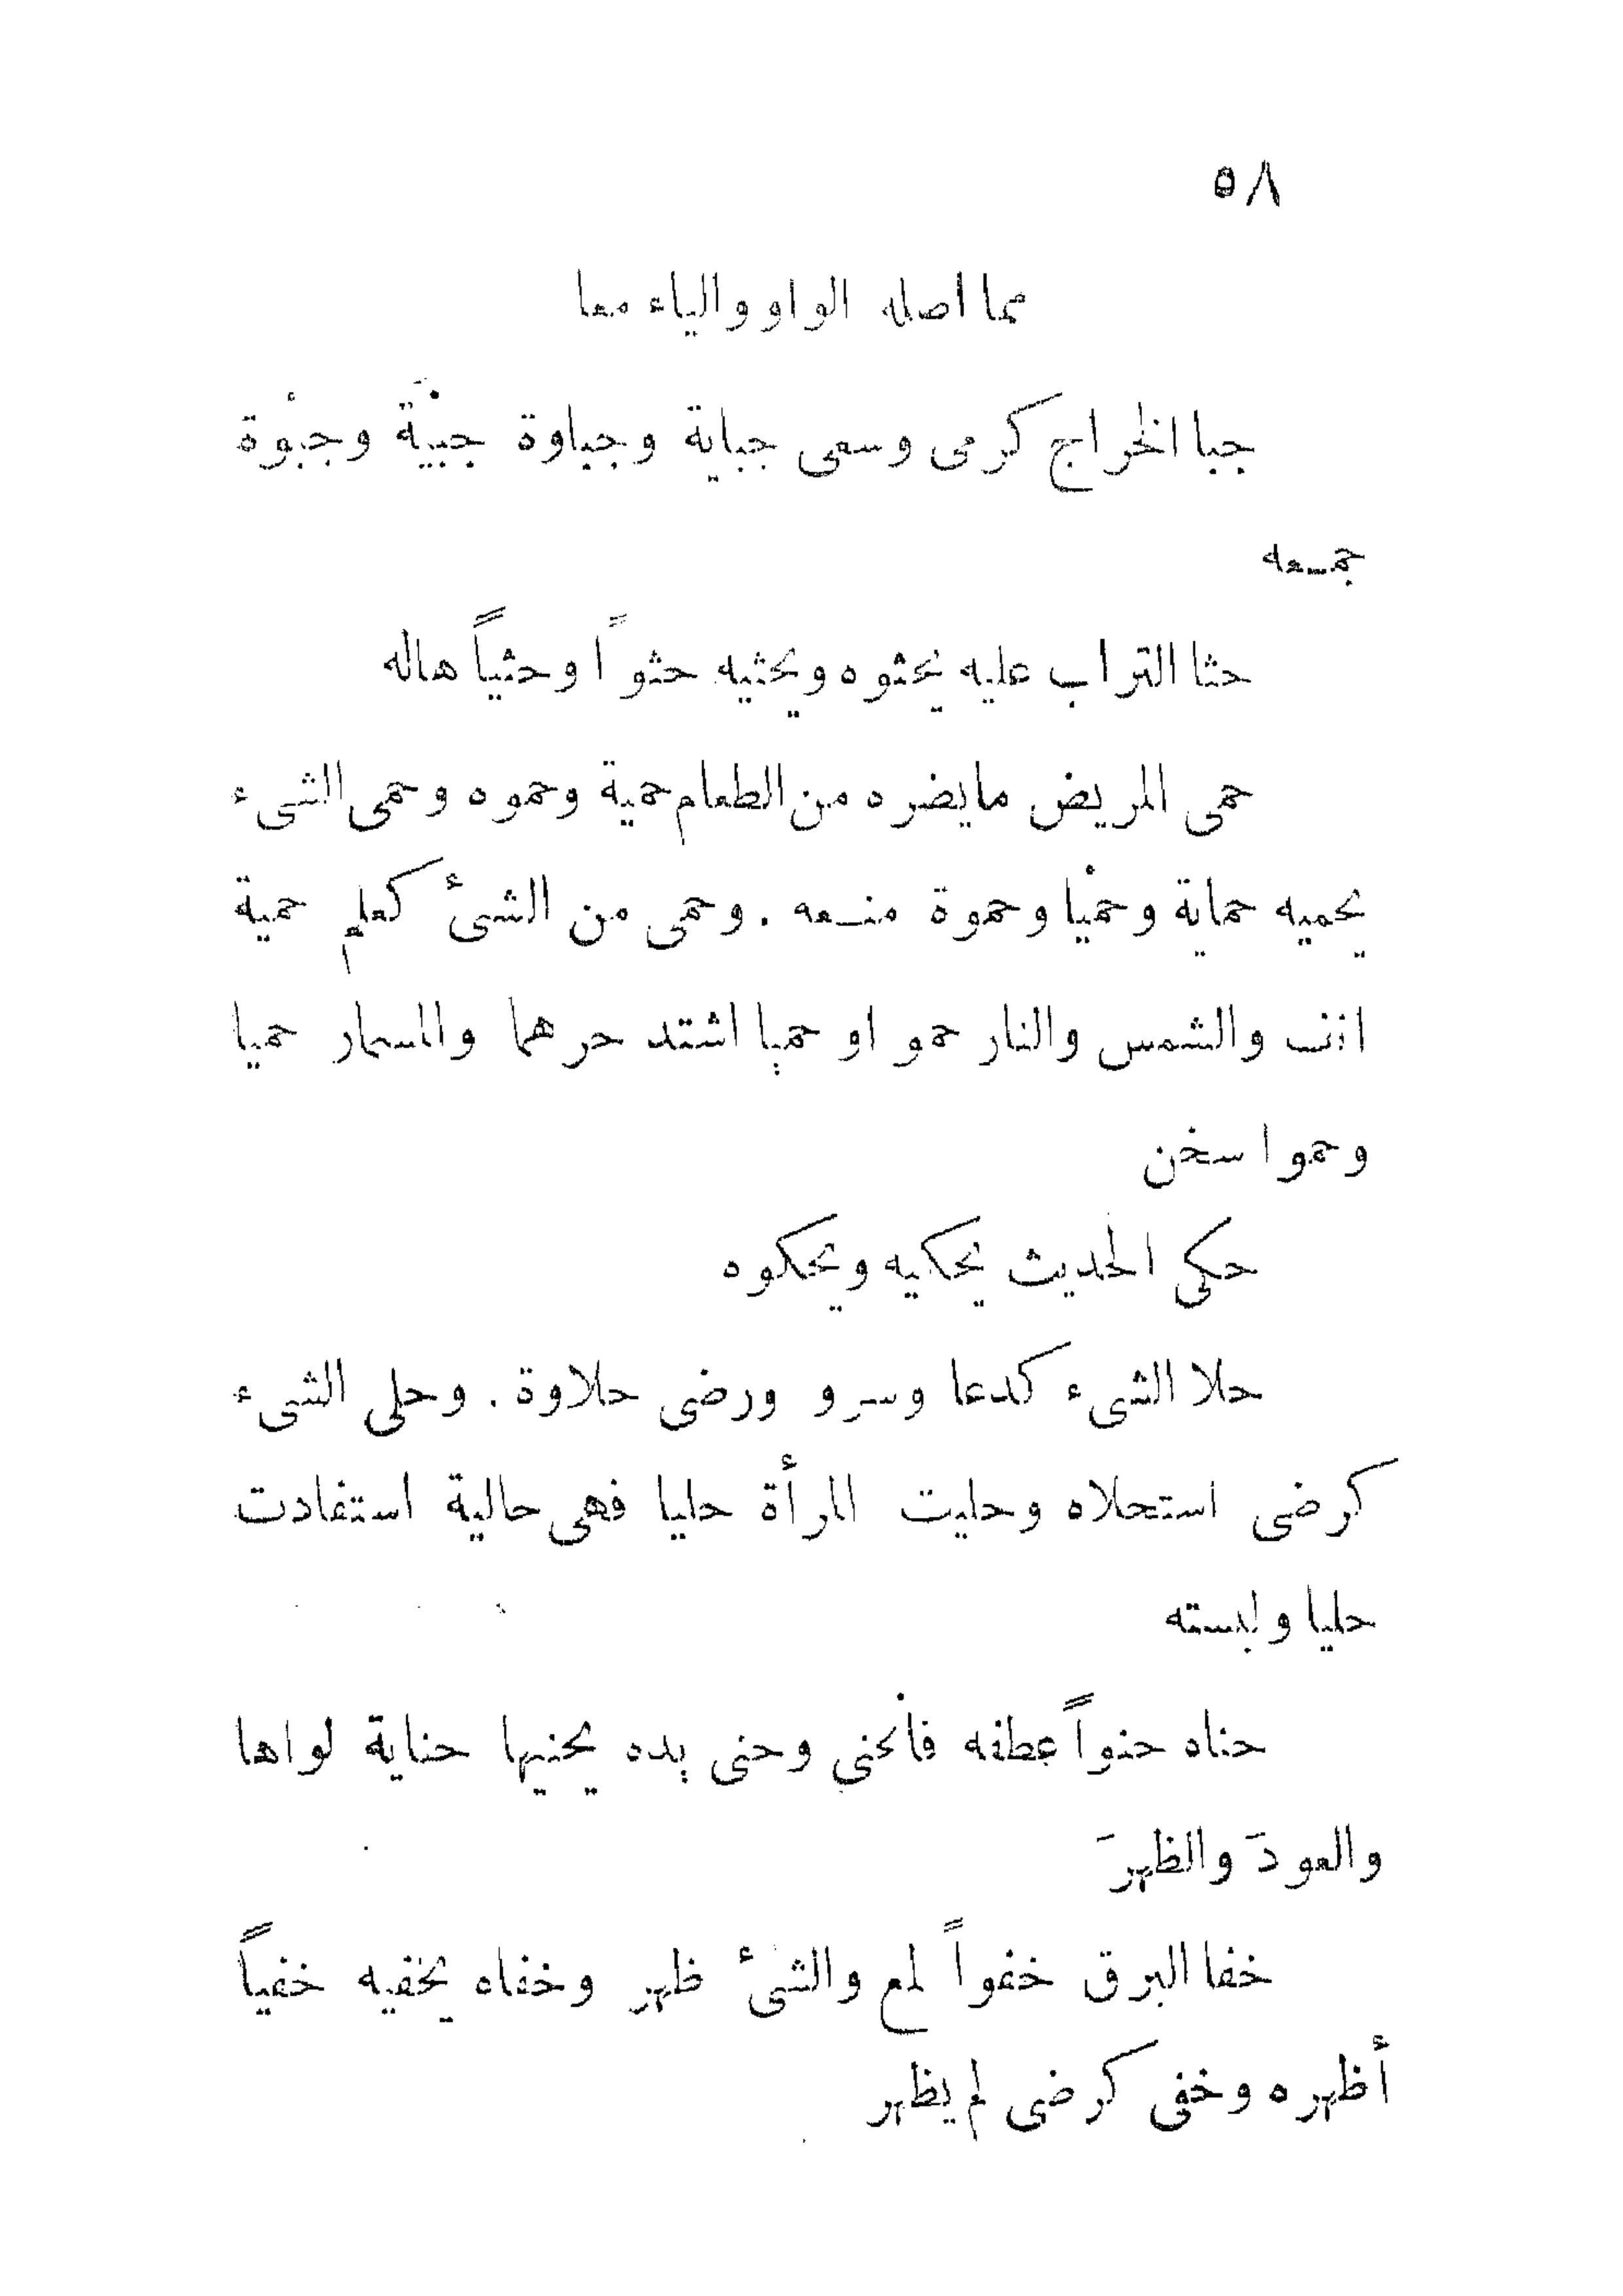 ٥٨
مما اصله الواو والياء معا
جبا الخراج كرمى وسعى جباية وجباوة جبْيَة وجبْوة
جمعه
حثا التراب عليه يحثوه ويحثيه حثواً وحثياً هاله
حمى المريض مايضره من الطعام حمية وحموه وحمى الشىء
يحميه حماية وحمْيا وحموة منعه . وحمى من الشئ كعلم حمية
انف والشمس والنار حمو او حميا اشتد حرهما والمسمار حميا
وحموا سخن
حكى الحديث يحكيه ويحكوه
حلا الشىء كدعا وسرو ورضى حلاوة . وحلى الشىء
كرضى استحلاه وحليت المرأة حليا فهى حالية استفادت
حليا ولبسته
حناه حنواً عطفه فانحنى وحنى يده يحنيها حناية لواها
والعودَ والظهرَ
خفا البرق خفواً لمع والشئ ظهر وخفاه يخفيه خفياً
أظهره وخفى كرضى لم يظهر